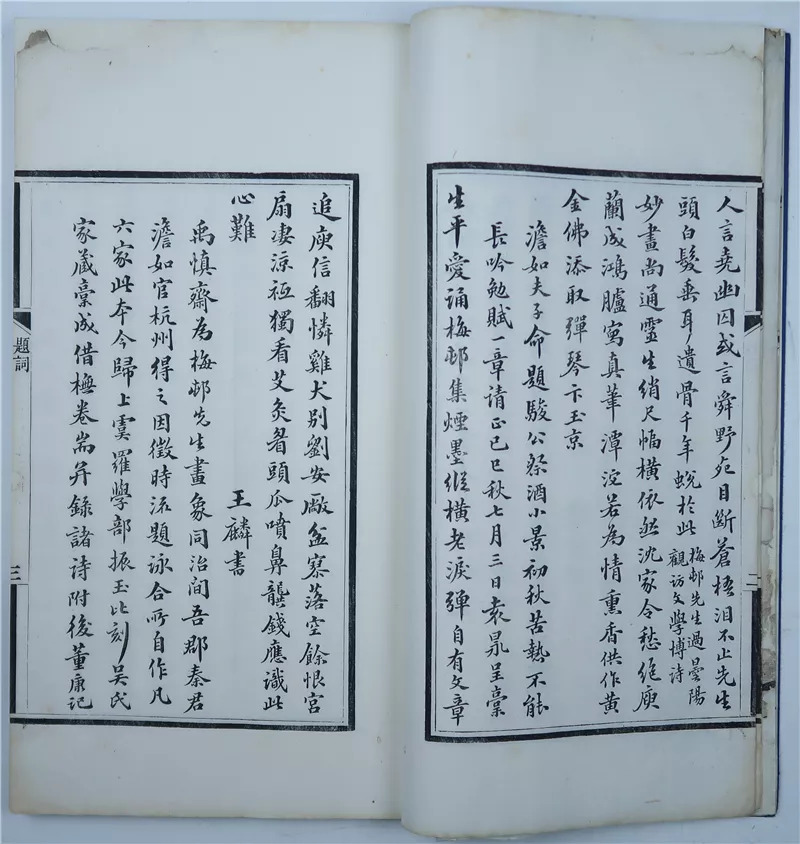 人言堯幽囚或言舜野死目斷蒼梧淚不止先生
頭白髮垂耳遺骨千年蛻於此梅邨先生過曇陽
觀訪文學博詩
妙畫尚通靈生綃尺幅橫依然沈家令愁絕庾
蘭成鴻臚寫真筆潭淀若為情熏香供作黃
金佛添取彈琴卞玉京
澹如夫子命題駿公祭酒小景初秋苦熱不能
長吟勉賦一章請正己巳秋七月三日袁㫤呈稾
生平愛誦梅邨集煙墨縱橫老淚彈自有文章
二
追庾信翻憐雞犬別劉安廠盆寥落空餘恨宮
扇淒涼祗獨看艾灸眉頭瓜噴鼻龔錢應識此
心難
王麟書
禹慎齋為梅邨先生畫象同治間吾郡秦君
澹如官杭州得之因徵時流題詠合所自作凡
六家此本今歸上虞羅學部振玉比刻吳氏
家藏稾成借橅卷耑并錄諸詩附後董康記
題詞
三